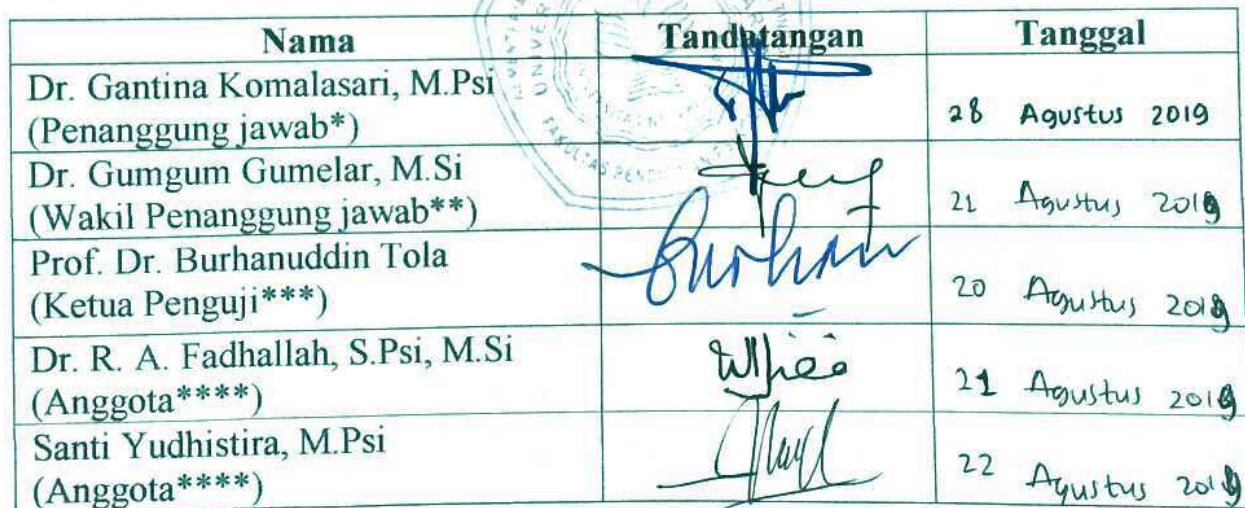 Nama Tandatangan Tanggal
Dr. Gantina Komalasari, M.Psi
(Penanggung jawab*) 28 Agustus 2019
Dr. Gumgum Gumelar, M.Si
(Wakil Penanggung jawab**) 21 Agustus 2019
Prof. Dr. Burhanuddin Tola
(Ketua Penguji***) 20 Agustus 2019
Dr. R. A. Fadhallah, S.Psi, M.Si
(Anggota****) 21 Agustus 2019
Santi Yudhistira, M.Psi
(Anggota****) 22 Agustus 2019